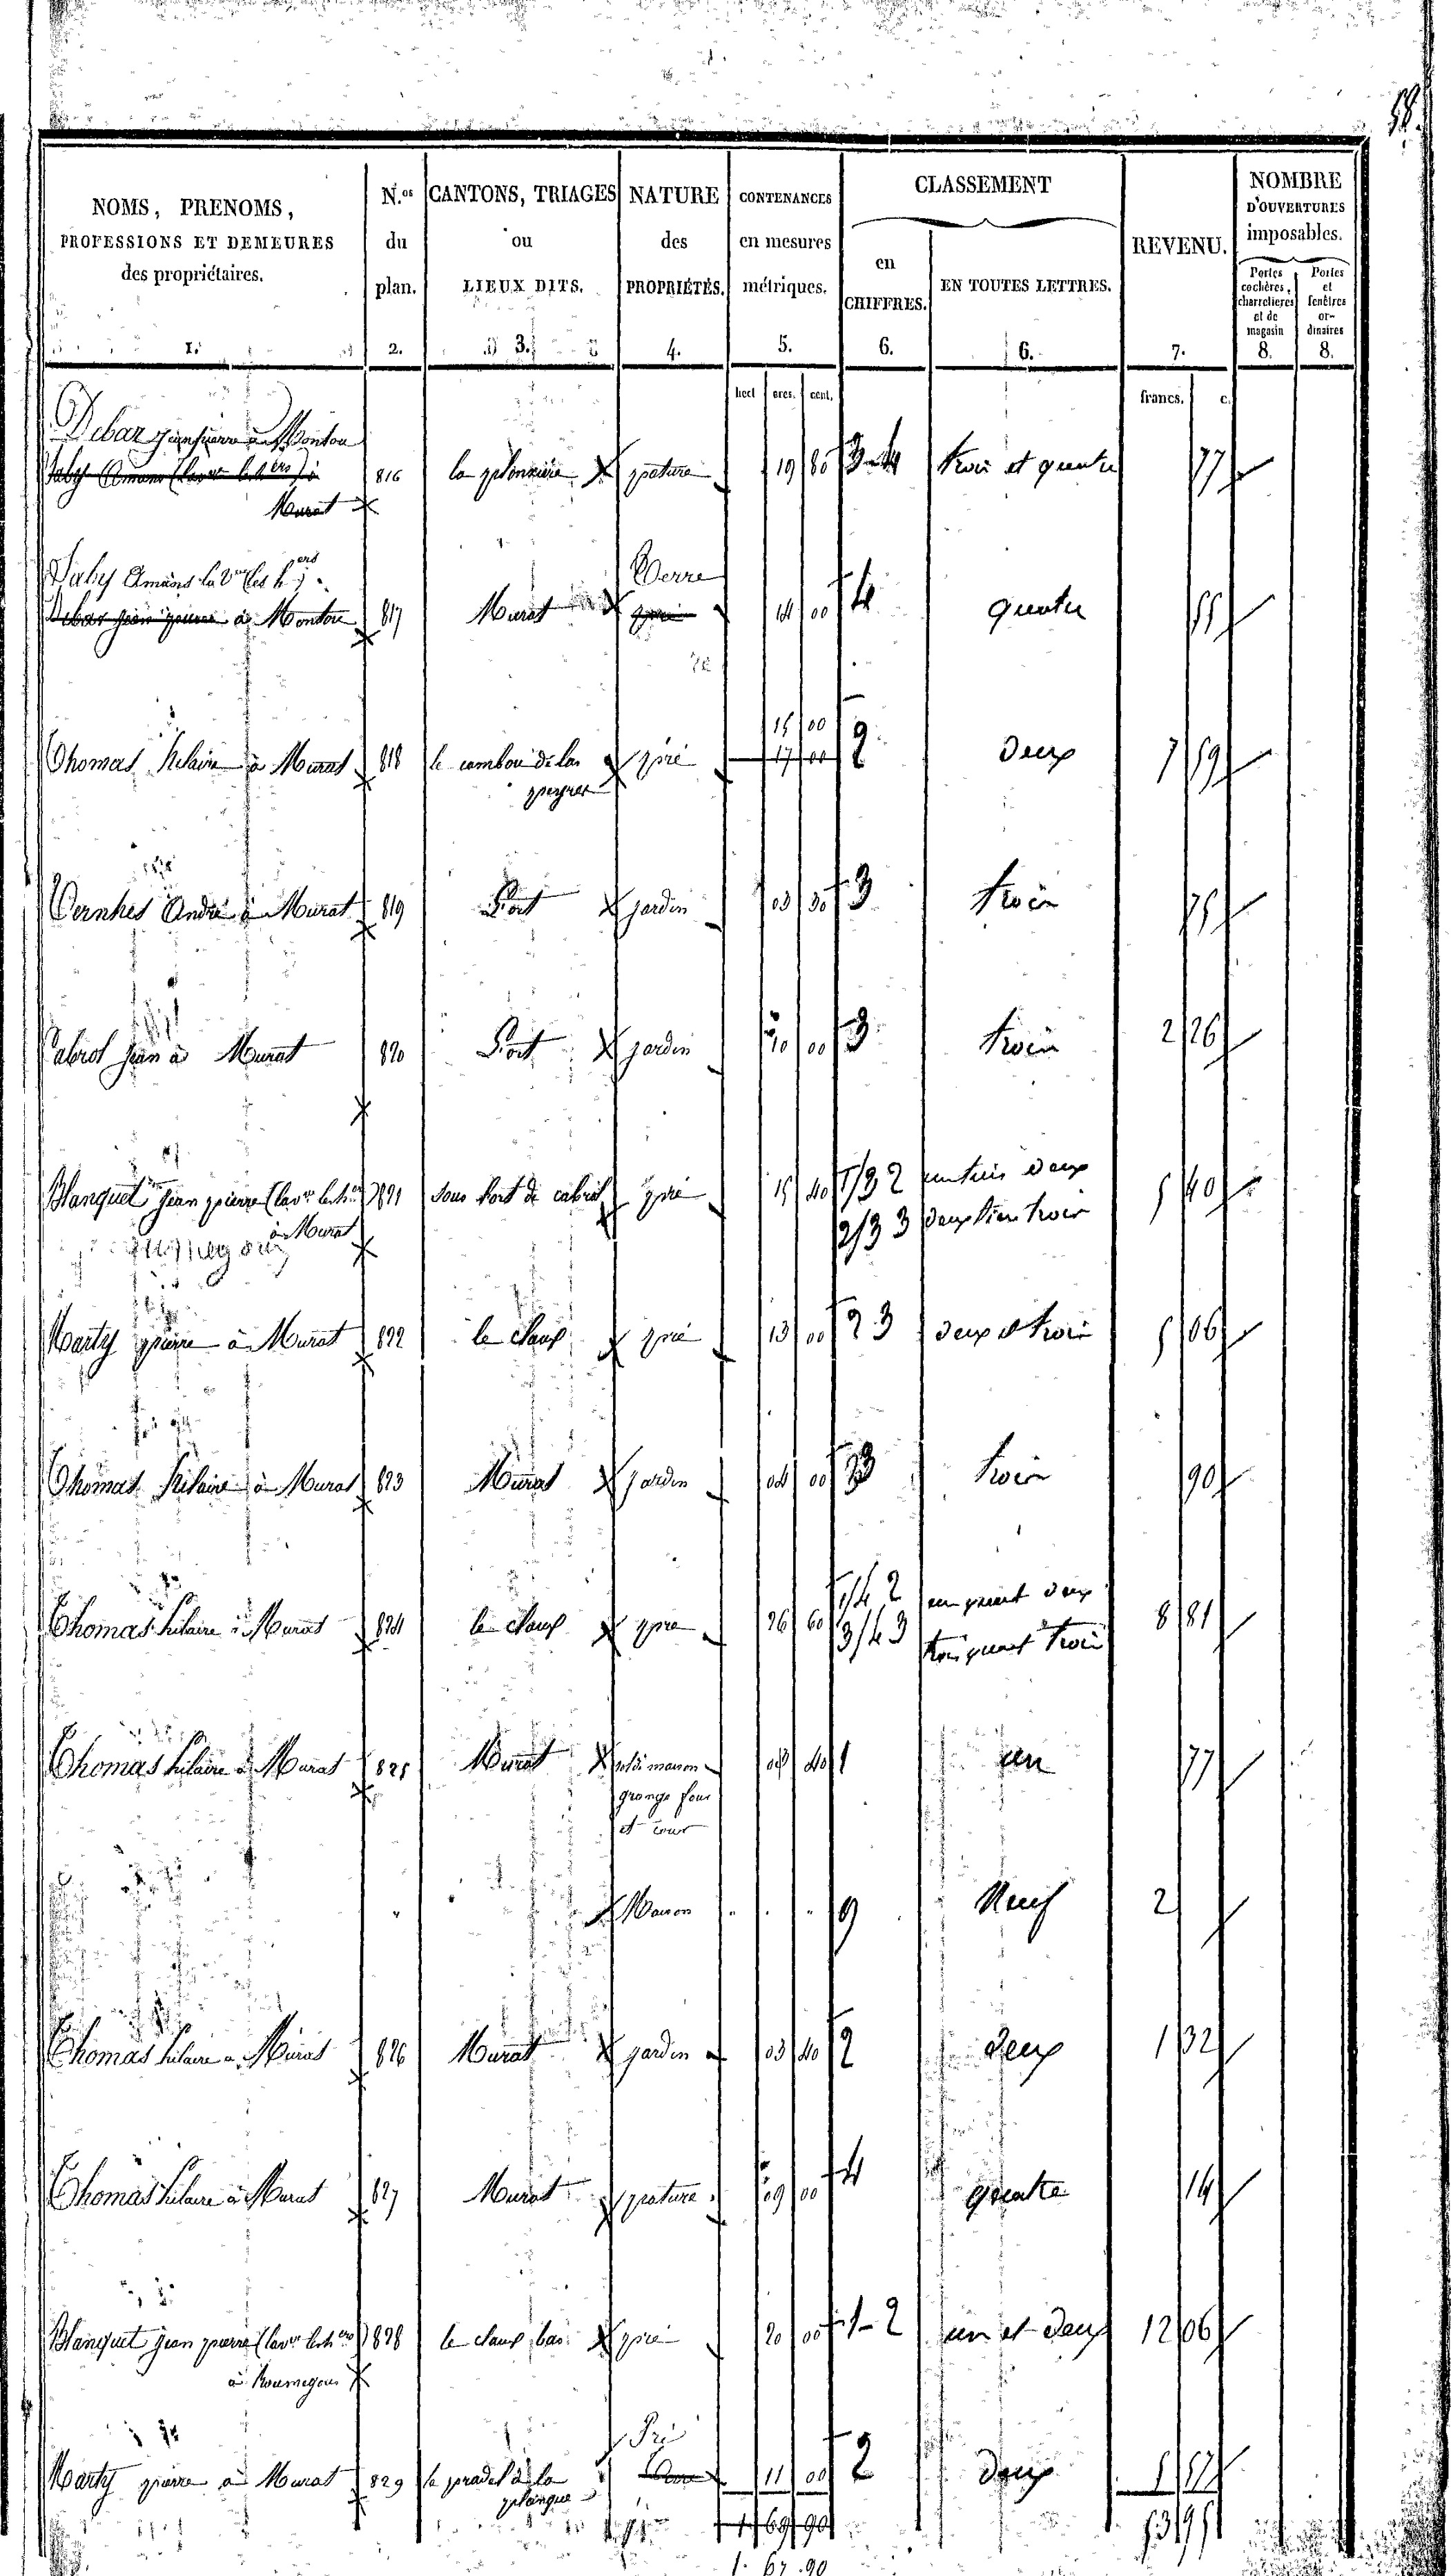 58.
NOMS, PRENOMS, PROFESSIONS ET DEMEURES des propriétaires. 1.
N.os du plan. 2.
CANTONS, TRIAGES ou LIEUX DITS. 3.
NATURE des PROPRIÉTÉS. 4.
CONTENANCES en mesures métriques. 5.
CLASSEMENT
en CHIFFRES. 6.
EN TOUTES LETTRES. 6.
REVENU. 7.
NOMBRE D'OUVERTURES imposables.
Portes cochères, charretieres et de magasin 8.
Portes et fenêtres or-dinaires 8.
hect ares. cent. francs. c.
Debar jean pierre à Montou
816 la plonnière pature 19 80 3-4 trois et quatre 77
Murat
Amans la Ve les hers
Terre
Debar jean pierre à Montou 817 Murat 14 00 4 quatre 55
15 00
Thomas Hilaire à Murat 818 le cambou de las pré 17 00 2 deux 7 59
peyres
Vernhes André à Murat 819 Port jardin 03 30 3 trois 75
Cabrol jean à Murat 820 Port jardin 10 00 3 trois 2 26
Blanquet jean pierre (la ve les hers) 821 Sous Port de cabrol pré 15 40 1/3 2 un tiers deux 5 40
à Murat 2/3 3 deux tiers trois
Marty pierre à Murat 822 le claux pré 13 00 2 3 deux et trois 5 06
Thomas Hilaire à Murat 823 Murat jardin 04 00 3 trois 90
Thomas hilaire à Murat 824 le claux pré 26 60 1/4 2 un quart deux 8 81
3/4 3 trois quart trois
Thomas hilaire à Murat 825 Murat sol de maison 03 40 1 un 77
grange four
et cour
" Maison 9 Neuf 2
Thomas hilaire à Murat 826 Murat jardin 03 40 2 deux 1 32
Thomas hilaire à Murat 827 Murat pature 09 00 4 quatre 14
Blanquet jean pierre (la ve les hers) 828 le claux bas pré 20 00 1-2 un et deux 12 06
à Roumegous
Pré
Marty pierre à Murat 829 le pradel de la 11 00 2 deux 5 57
planque
1 69 90 53 95
1. 67. 90